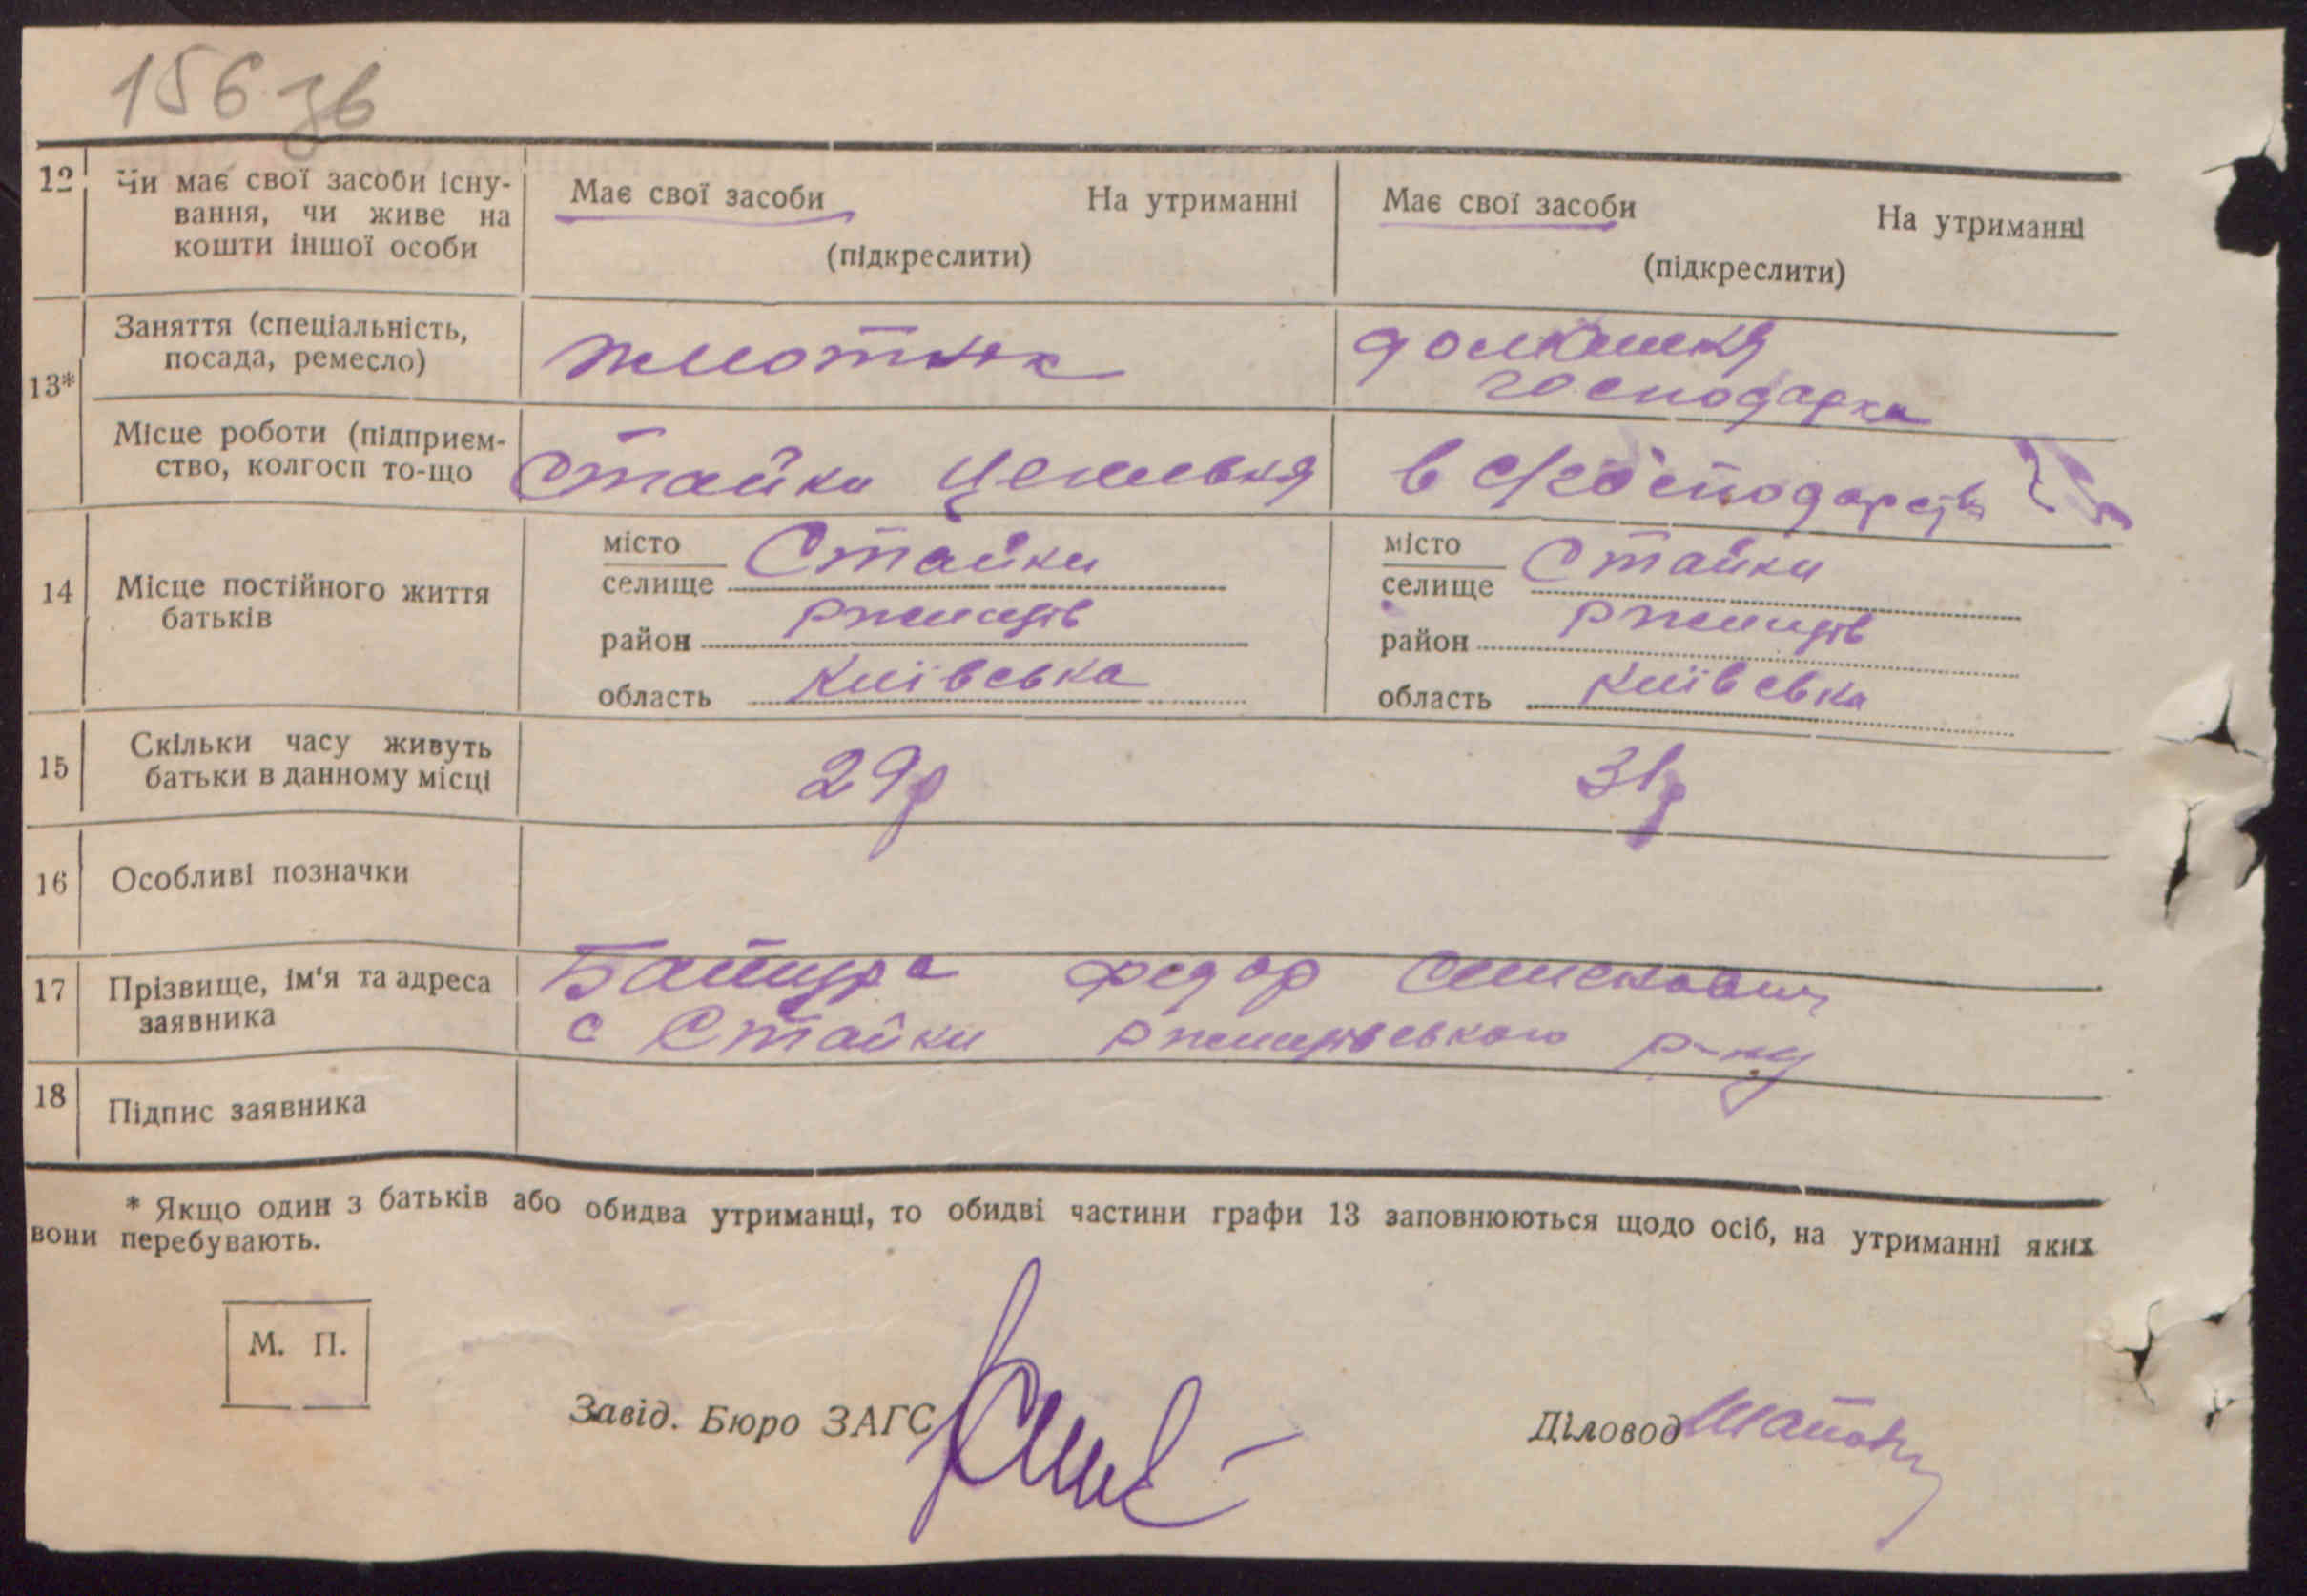 156 зв
12 Чи має свої засоби існу-
вання, чи живе на
кошти іншої особи
Має свої засоби На утриманні
(підкреслити)
Має свої засоби На утриманні
(підкреслити)
13*
Заняття (спеціальність,
посада, ремесло)
домашня
господарка
Місце роботи (підприєм-
ство, колгосп то-що
Стайки
в с/господарств
14 Місце постійного життя
батьків
місто
селище Стайки
район Ржищів
область Київська
місто
селище Стайки
район Ржищів
область Київська
15 Скільки часу живуть
батьки в данному місці
29р
31р
16 Особливі позначки
17 Прізвище, ім'я та адреса
заявника
Федор
с Стайки Ржищівського р-ну
18 Підпис заявника
* Якщо один з батьків або обидва утриманці, то обидві частини графи 13 заповнюються щодо осіб, на утриманні яких
вони перебувають.
М. П.
Завід. Бюро ЗАГС
Діловод